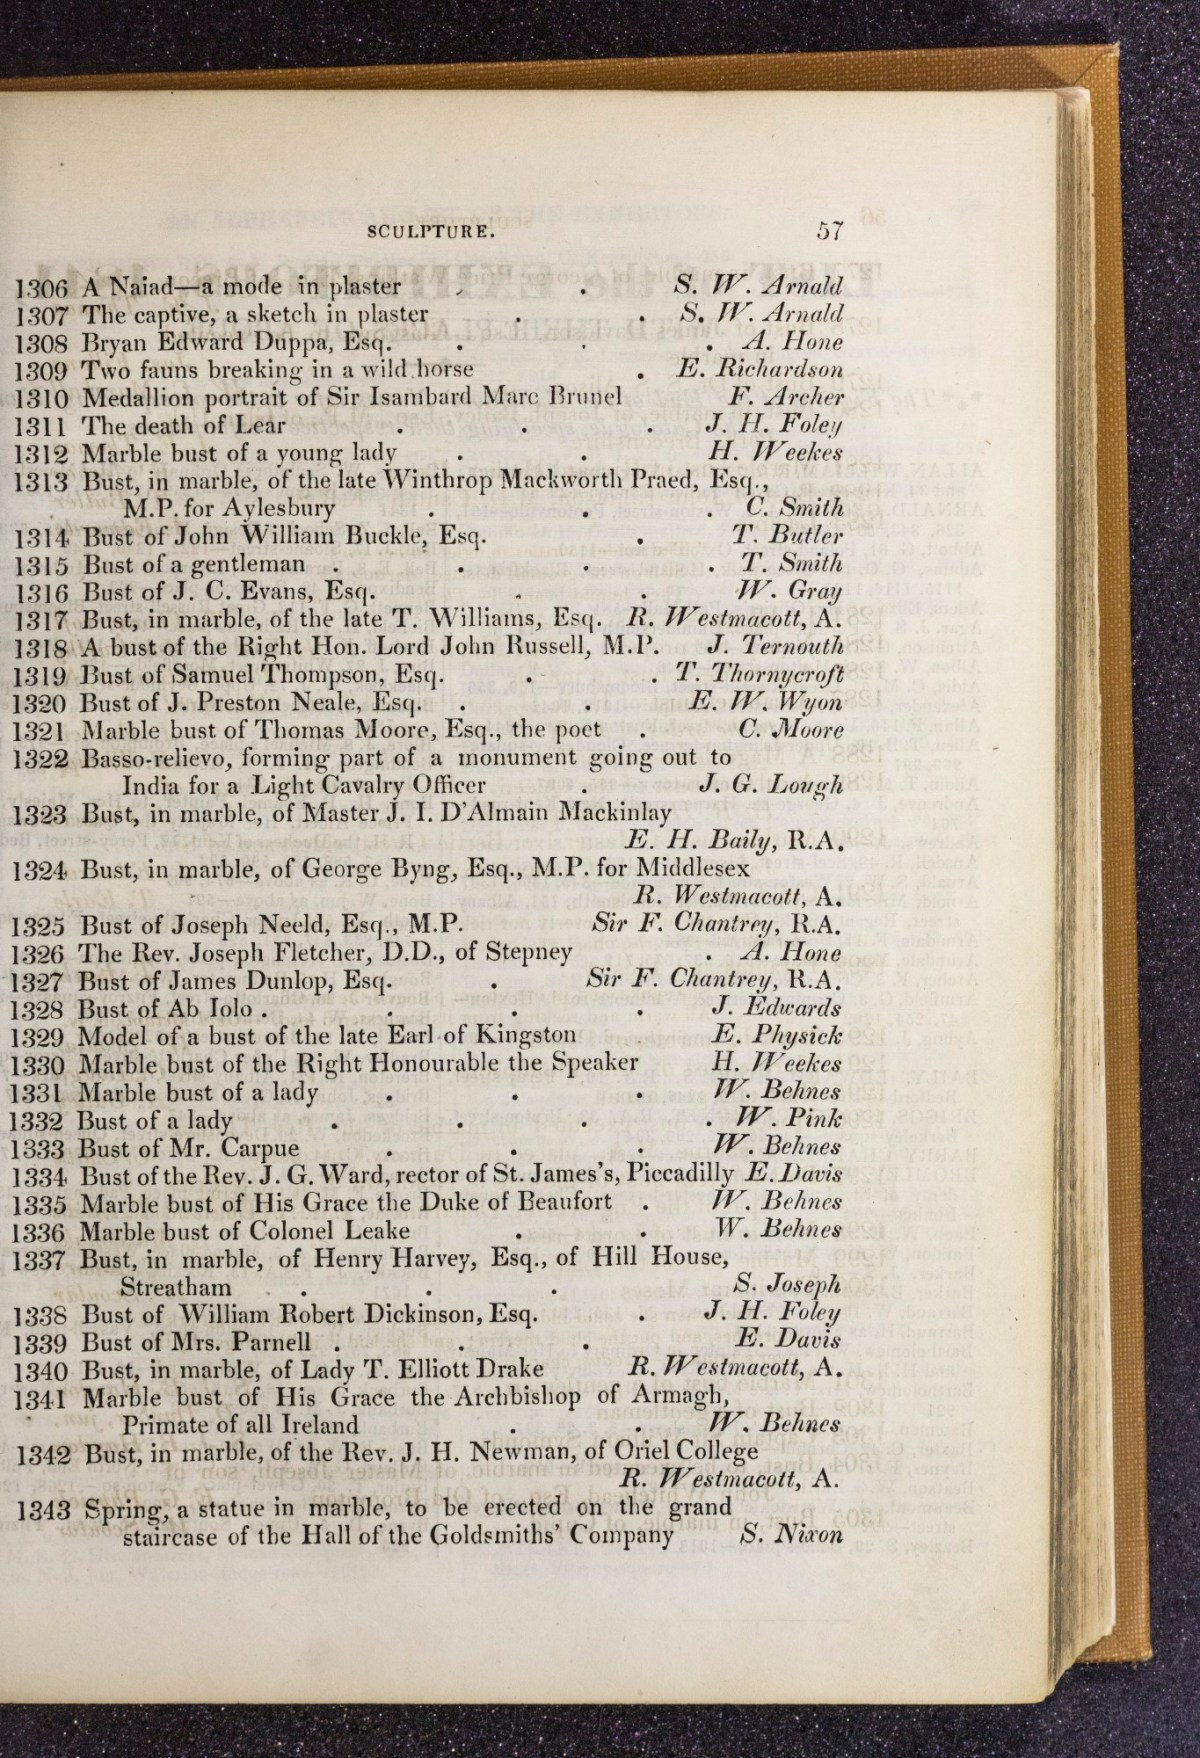 SCULPTURE. 57
1306 A Naiad—a mode in plaster . . S. W. Arnald
1307 The captive, a sketch in plaster . . S. W. Arnald
1308 Bryan Edward Duppa, Esq. . . . A. Hone
1309 Two fauns breaking in a wild horse . E. Richardson
1310 Medallion portrait of Sir Isambard Marc Brunel F. Archer
1311 The death of Lear . . . J. H. Foley
1312 Marble bust of a young lady . . H. Weekes
1313 Bust, in marble, of the late Winthrop Mackworth Praed, Esq.,
M.P. for Aylesbury . . . C. Smith
1314 Bust of John William Buckle, Esq. . T. Butler
1315 Bust of a gentleman . . . . T. Smith
1316 Bust of J. C. Evans, Esq. . . W. Gray
1317 Bust, in marble, of the late T. Williams, Esq. R. Westmacott, A.
1318 A bust of the Right Hon. Lord John Russell, M.P. J. Ternouth
1319 Bust of Samuel Thompson, Esq. . . T. Thornycroft
1320 Bust of J. Preston Neale, Esq. . . E. W. Wyon
1321 Marble bust of Thomas Moore, Esq., the poet . C. Moore
1322 Basso-relievo, forming part of a monument going out to
India for a Light Cavalry Officer . J. G. Lough
1323 Bust, in marble, of Master J. I. D'Almain Mackinlay
E. H. Baily, R.A.
1324 Bust, in marble, of George Byng, Esq., M.P. for Middlesex
R. Westmacott, A.
1325 Bust of Joseph Neeld, Esq., M.P. Sir F. Chantrey, R.A.
1326 The Rev. Joseph Fletcher, D.D., of Stepney . A. Hone
1327 Bust of James Dunlop, Esq. . Sir F. Chantrey, R.A.
1328 Bust of Ab Iolo . . . . J. Edwards
1329 Model of a bust of the late Earl of Kingston E. Physick
1330 Marble bust of the Right Honourable the Speaker H. Weekes
1331 Marble bust of a lady . . . W. Behnes
1332 Bust of a lady . . . . W. Pink
1333 Bust of Mr. Carpue . . . W. Behnes
1334 Bust of the Rev. J. G. Ward, rector of St. James's, Piccadilly E. Davis
1335 Marble bust of His Grace the Duke of Beaufort . W. Behnes
1336 Marble bust of Colonel Leake . . W. Behnes
1337 Bust, in marble, of Henry Harvey, Esq., of Hill House,
Streatham . . . S. Joseph
1338 Bust of William Robert Dickinson, Esq. . J. H. Foley
1339 Bust of Mrs. Parnell . . . E. Davis
1340 Bust, in marble, of Lady T. Elliott Drake R. Westmacott, A.
1341 Marble bust of His Grace the Archbishop of Armagh,
Primate of all Ireland . . W. Behnes
1342 Bust, in marble, of the Rev. J. H. Newman, of Oriel College
R. Westmacott, A.
1343 Spring, a statue in marble, to be erected on the grand
staircase of the Hall of the Goldsmiths' Company S. Nixon